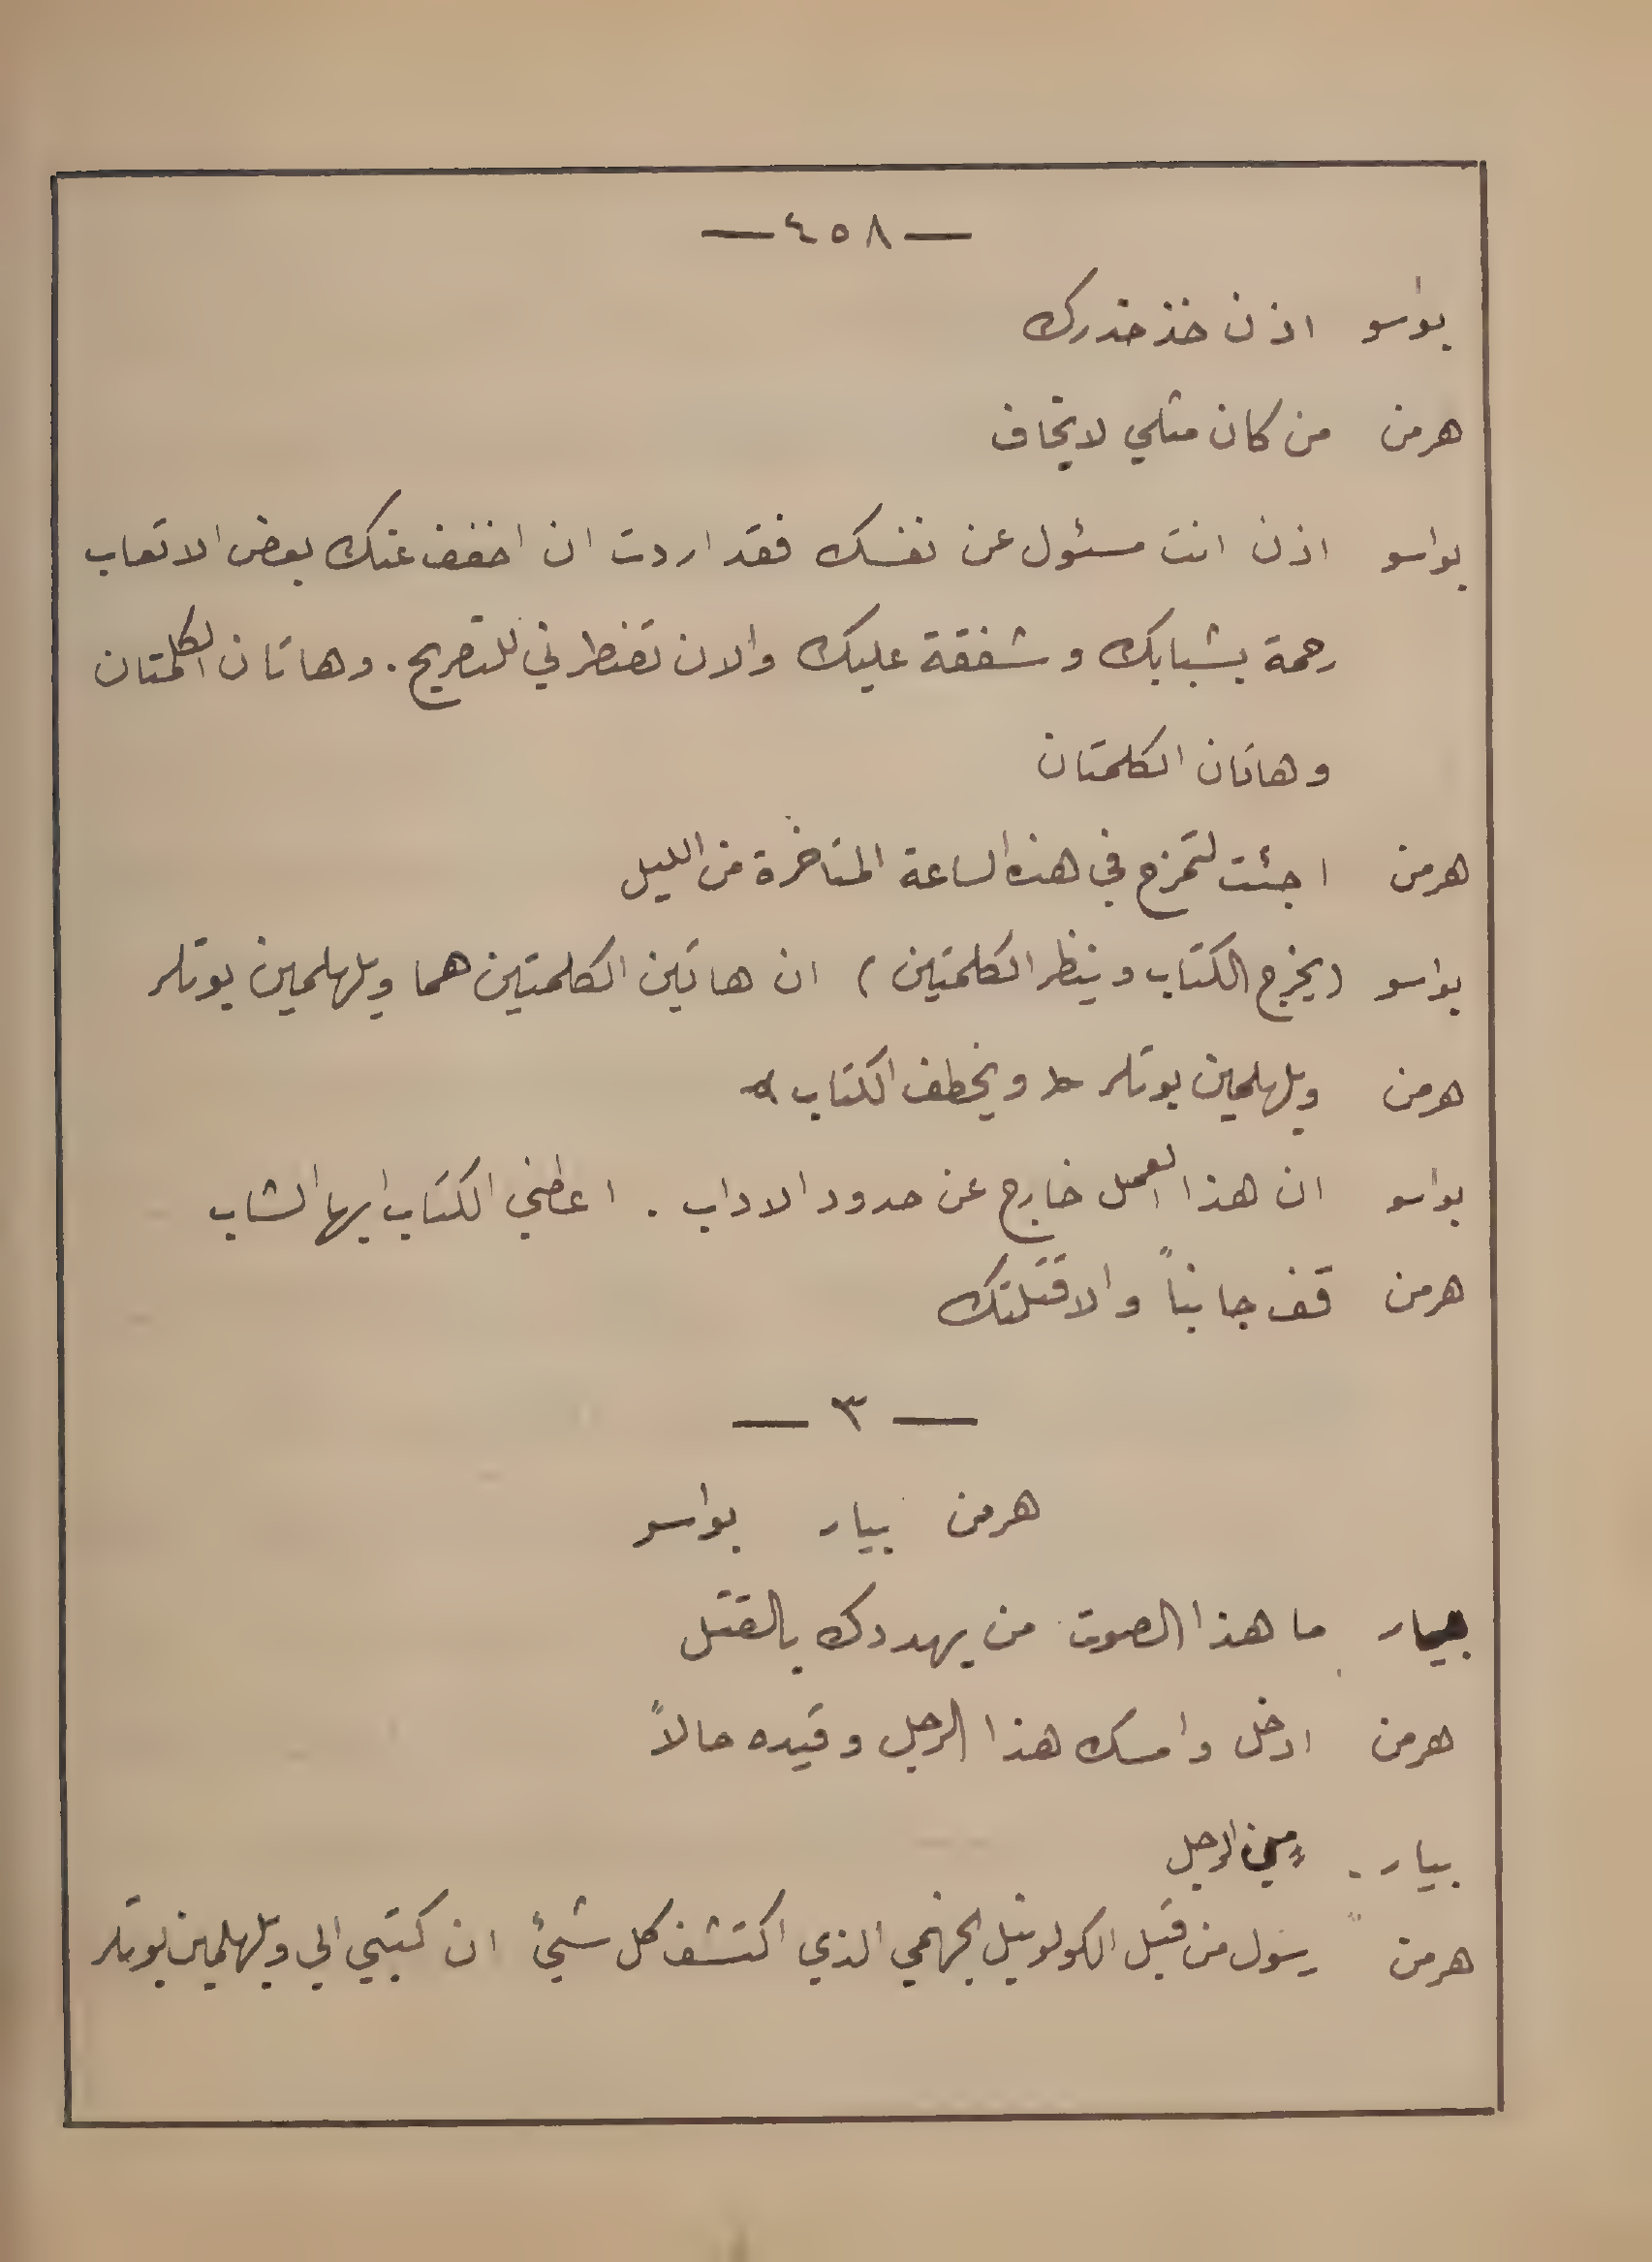 — ٤٥٨ —
بواسو اذن خذ حذرك
هرمن من كان مثلي لا يخاف
بواسو اذن انت مسئول عن نفسك فقد اردت ان اخفف عنك بعض الاتعاب
رحمة بشبابك وشفقة عليك والان تضطرني للتصريح . وهاتان الكلمتان
وهاتان الكلمتان
هرمن اجئت لتمزح في هذه الساعة المتاخرة من الليل
بواسو (يخرج الكتاب وينظر الكلمتين) ان هاتين الكلمتين هما ويلهلمين بوتلر
هرمن ويلهلمين بوتلر ( ويخطف الكتاب )
بواسو ان هذا العمل خارج عن حدود الاداب . اعطني الكتاب ايها الشاب
هرمن قف جانباً والا قتلتك
— ٣ —
هرمن بيار بواسو
بيار ما هذا الصوت من يهددك بالقتل
هرمن ادخل وامسك هذا الرجل وقيده حالاً
بيار . من الرجل
هرمن رسول من قبل الكولونيل الجهنمي الذي اكتشف كل شيئ ان كتبي الى ويلهلمين بوتلر